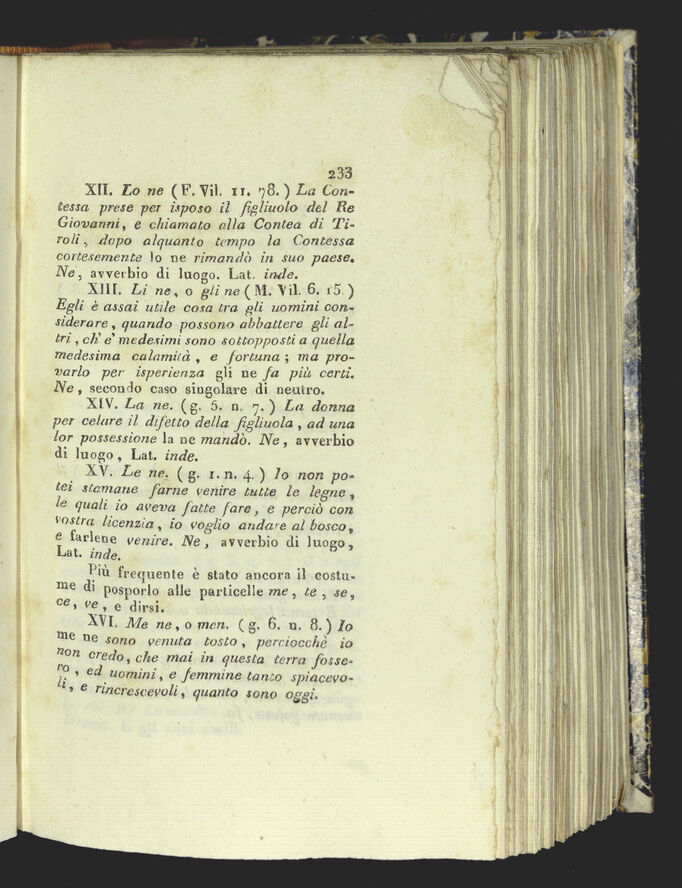 233
XII. Lo ne (F. Vil. 11. 78.) La Con-
tessa prese per isposo il figliuolo del Re
Giovanni, e chiamato alla Contea di Ti-
roli, dopo alquanto tempo la Contessa
cortesemente lo ne rimandò in suo paese.
Ne, avverbio di luogo. Lat. inde.
XIII. Li ne, o gli ne (M. Vil. 6. 15.)
Egli è assai utile cosa tra gli uomini con-
siderare, quando possono abbattere gli al-
tri, ch' e' medesimi sono sottopposti a quella
medesima calamità, e fortuna; ma pro-
varlo per isperienza gli ne fa più certi.
Ne, secondo caso singolare di neutro.
XIV. La ne. (g. 5. n. 7.) La donna
per celare il difetto della figliuola, ad una
lor possessione la ne mandò. Ne, avverbio
di luogo, Lat. inde.
XV. Le ne. (g. 1. n. 4.) Io non po-
tei stamane farne venire tutte le legne,
le quali io aveva fatte fare, e perciò con
vostra licenzia, io voglio andare al bosco,
e farlene venire. Ne, avverbio di luogo,
Lat. inde.
Più frequente è stato ancora il costu-
me di posporlo alle particelle me, te, se,
ce, ve, e dirsi.
XVI. Me ne, o men. (g. 6. n. 8.) Io
me ne sono venuta tosto, perciocchè io
non credo, che mai in questa terra fosse-
ro, ed uomini, e femmine tanto spiacevo-
li, e rincrescevoli, quanto sono oggi.